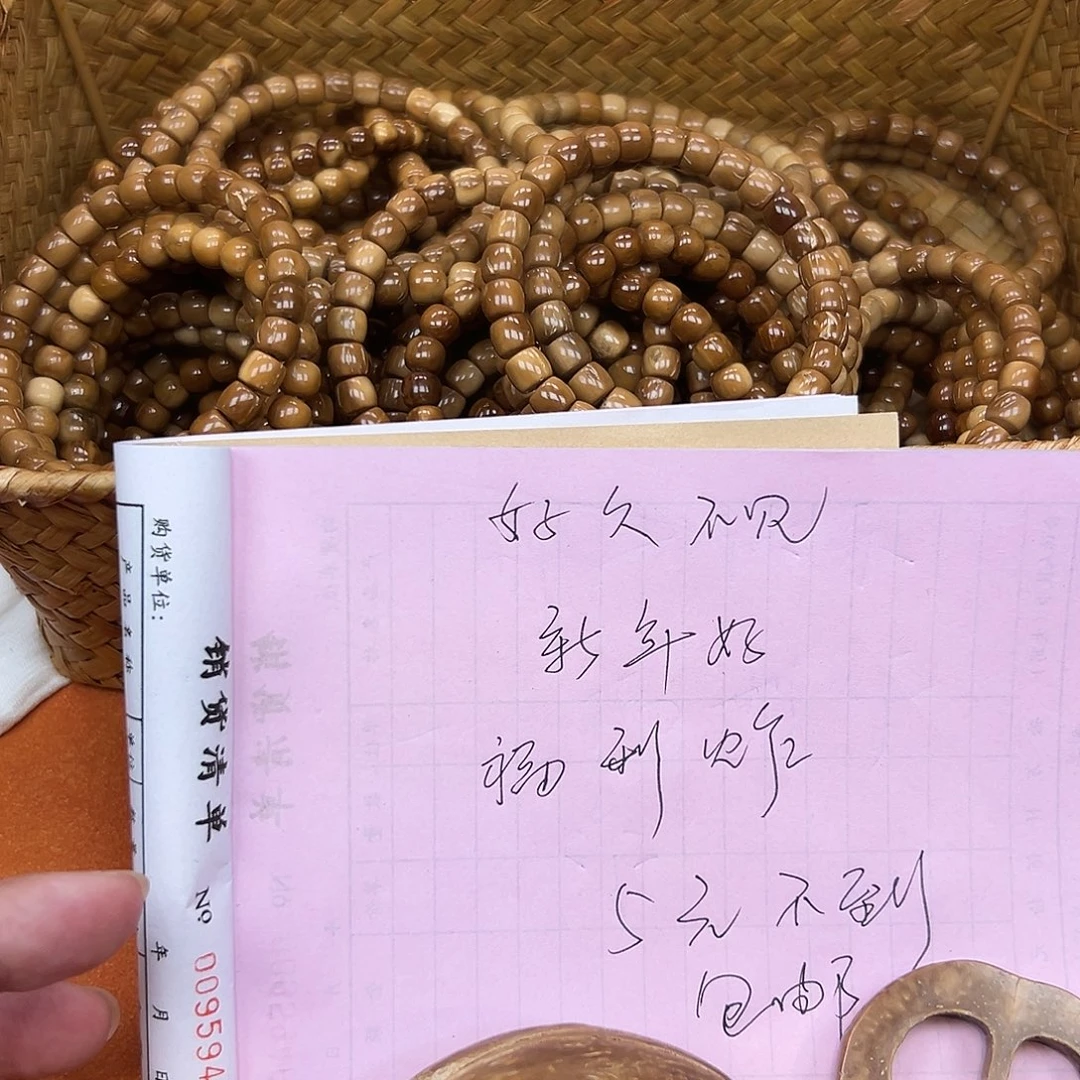 好久不见
新年好
福利炸
5元不到
包邮
购货单位:
产品名称
销货清单
No 009594
年 月